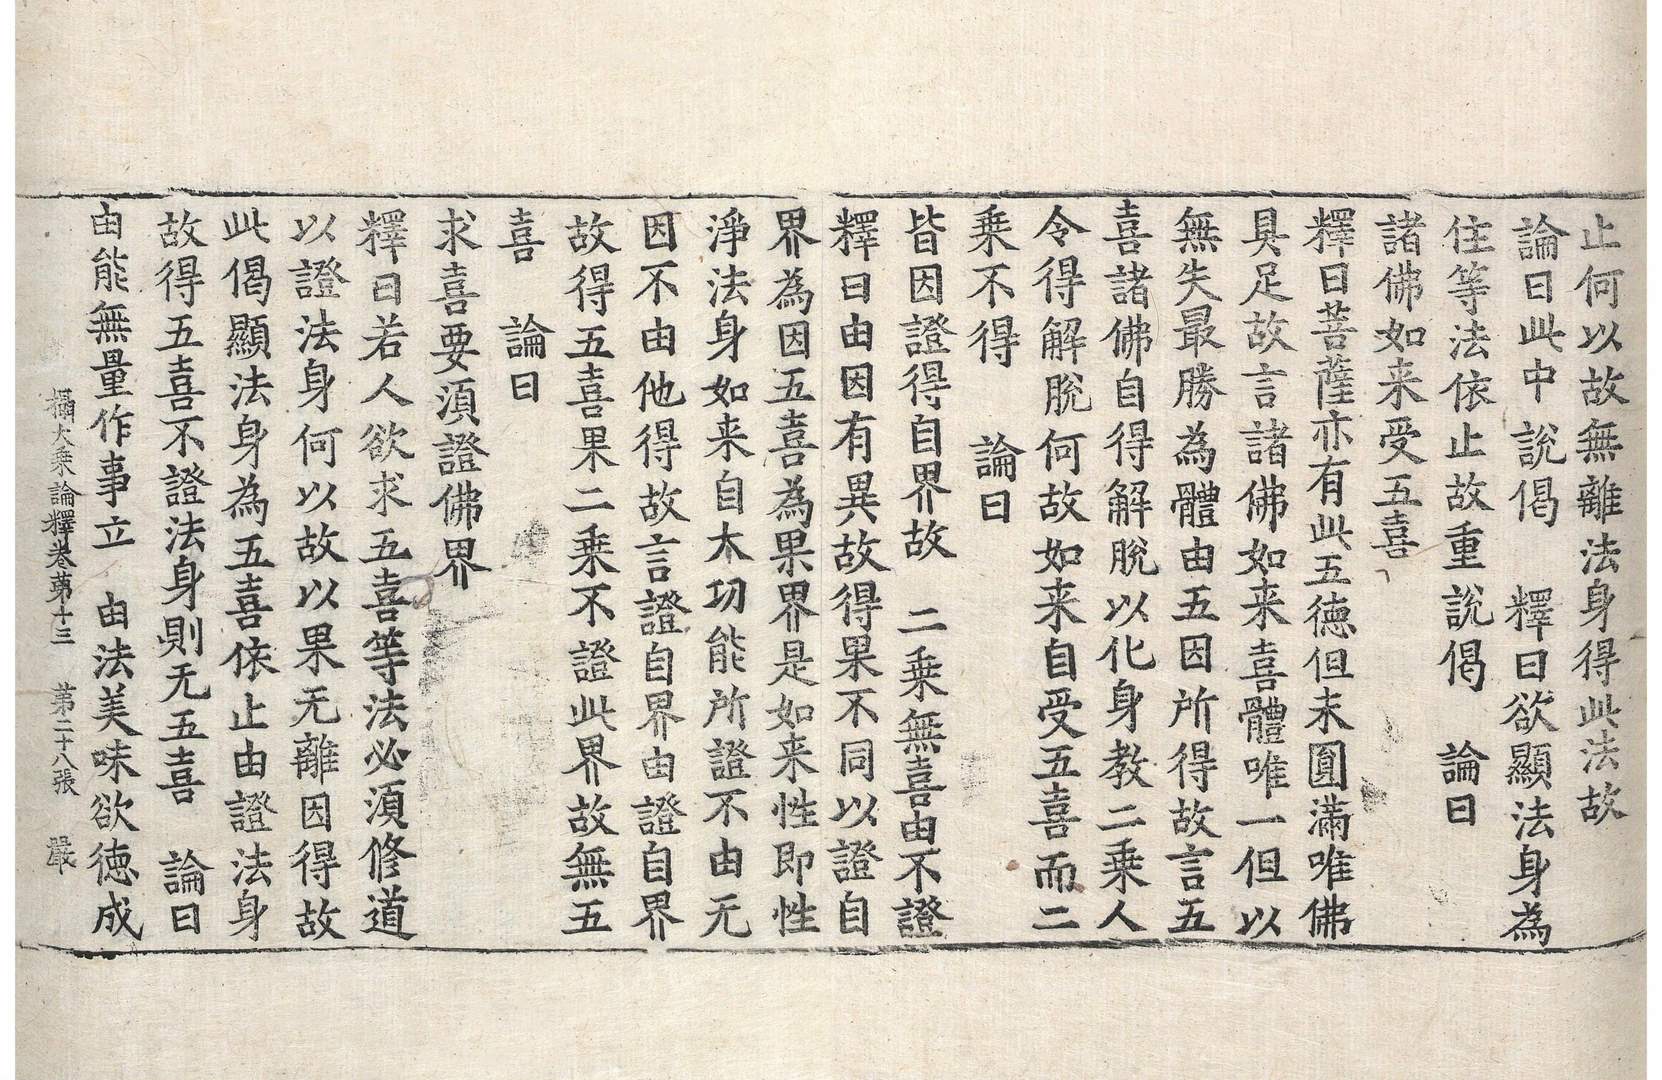 止何以故無離法身得此法故
論曰此中說偈　釋曰欲顯法身為
住等法依止故重說偈　論曰
諸佛如来受五喜
釋曰菩薩亦有此五德但未圓滿唯佛
具足故言諸佛如来喜體唯一但以
無失最勝為體由五因所得故言五
喜諸佛自得解脫以化身教二乗人
令得解脫何故如来自受五喜而二
乗不得　論曰
皆因證得自界故　二乗無喜由不證
釋曰由因有異故得果不同以證自
界為因五喜為果界是如来性即性
淨法身如来自本功能所證不由无
因不由他得故言證自界由證自界
故得五喜果二乗不證此界故無五
喜　論曰
求喜要須證佛界
釋曰若人欲求五喜等法必須修道
以證法身何以故以果无離因得故
此偈顯法身為五喜依止由證法身
故得五喜不證法身則无五喜　論曰
由能無量作事立　由法美味欲德成
攝大乗論釋卷苐十三　苐二十八張　嚴